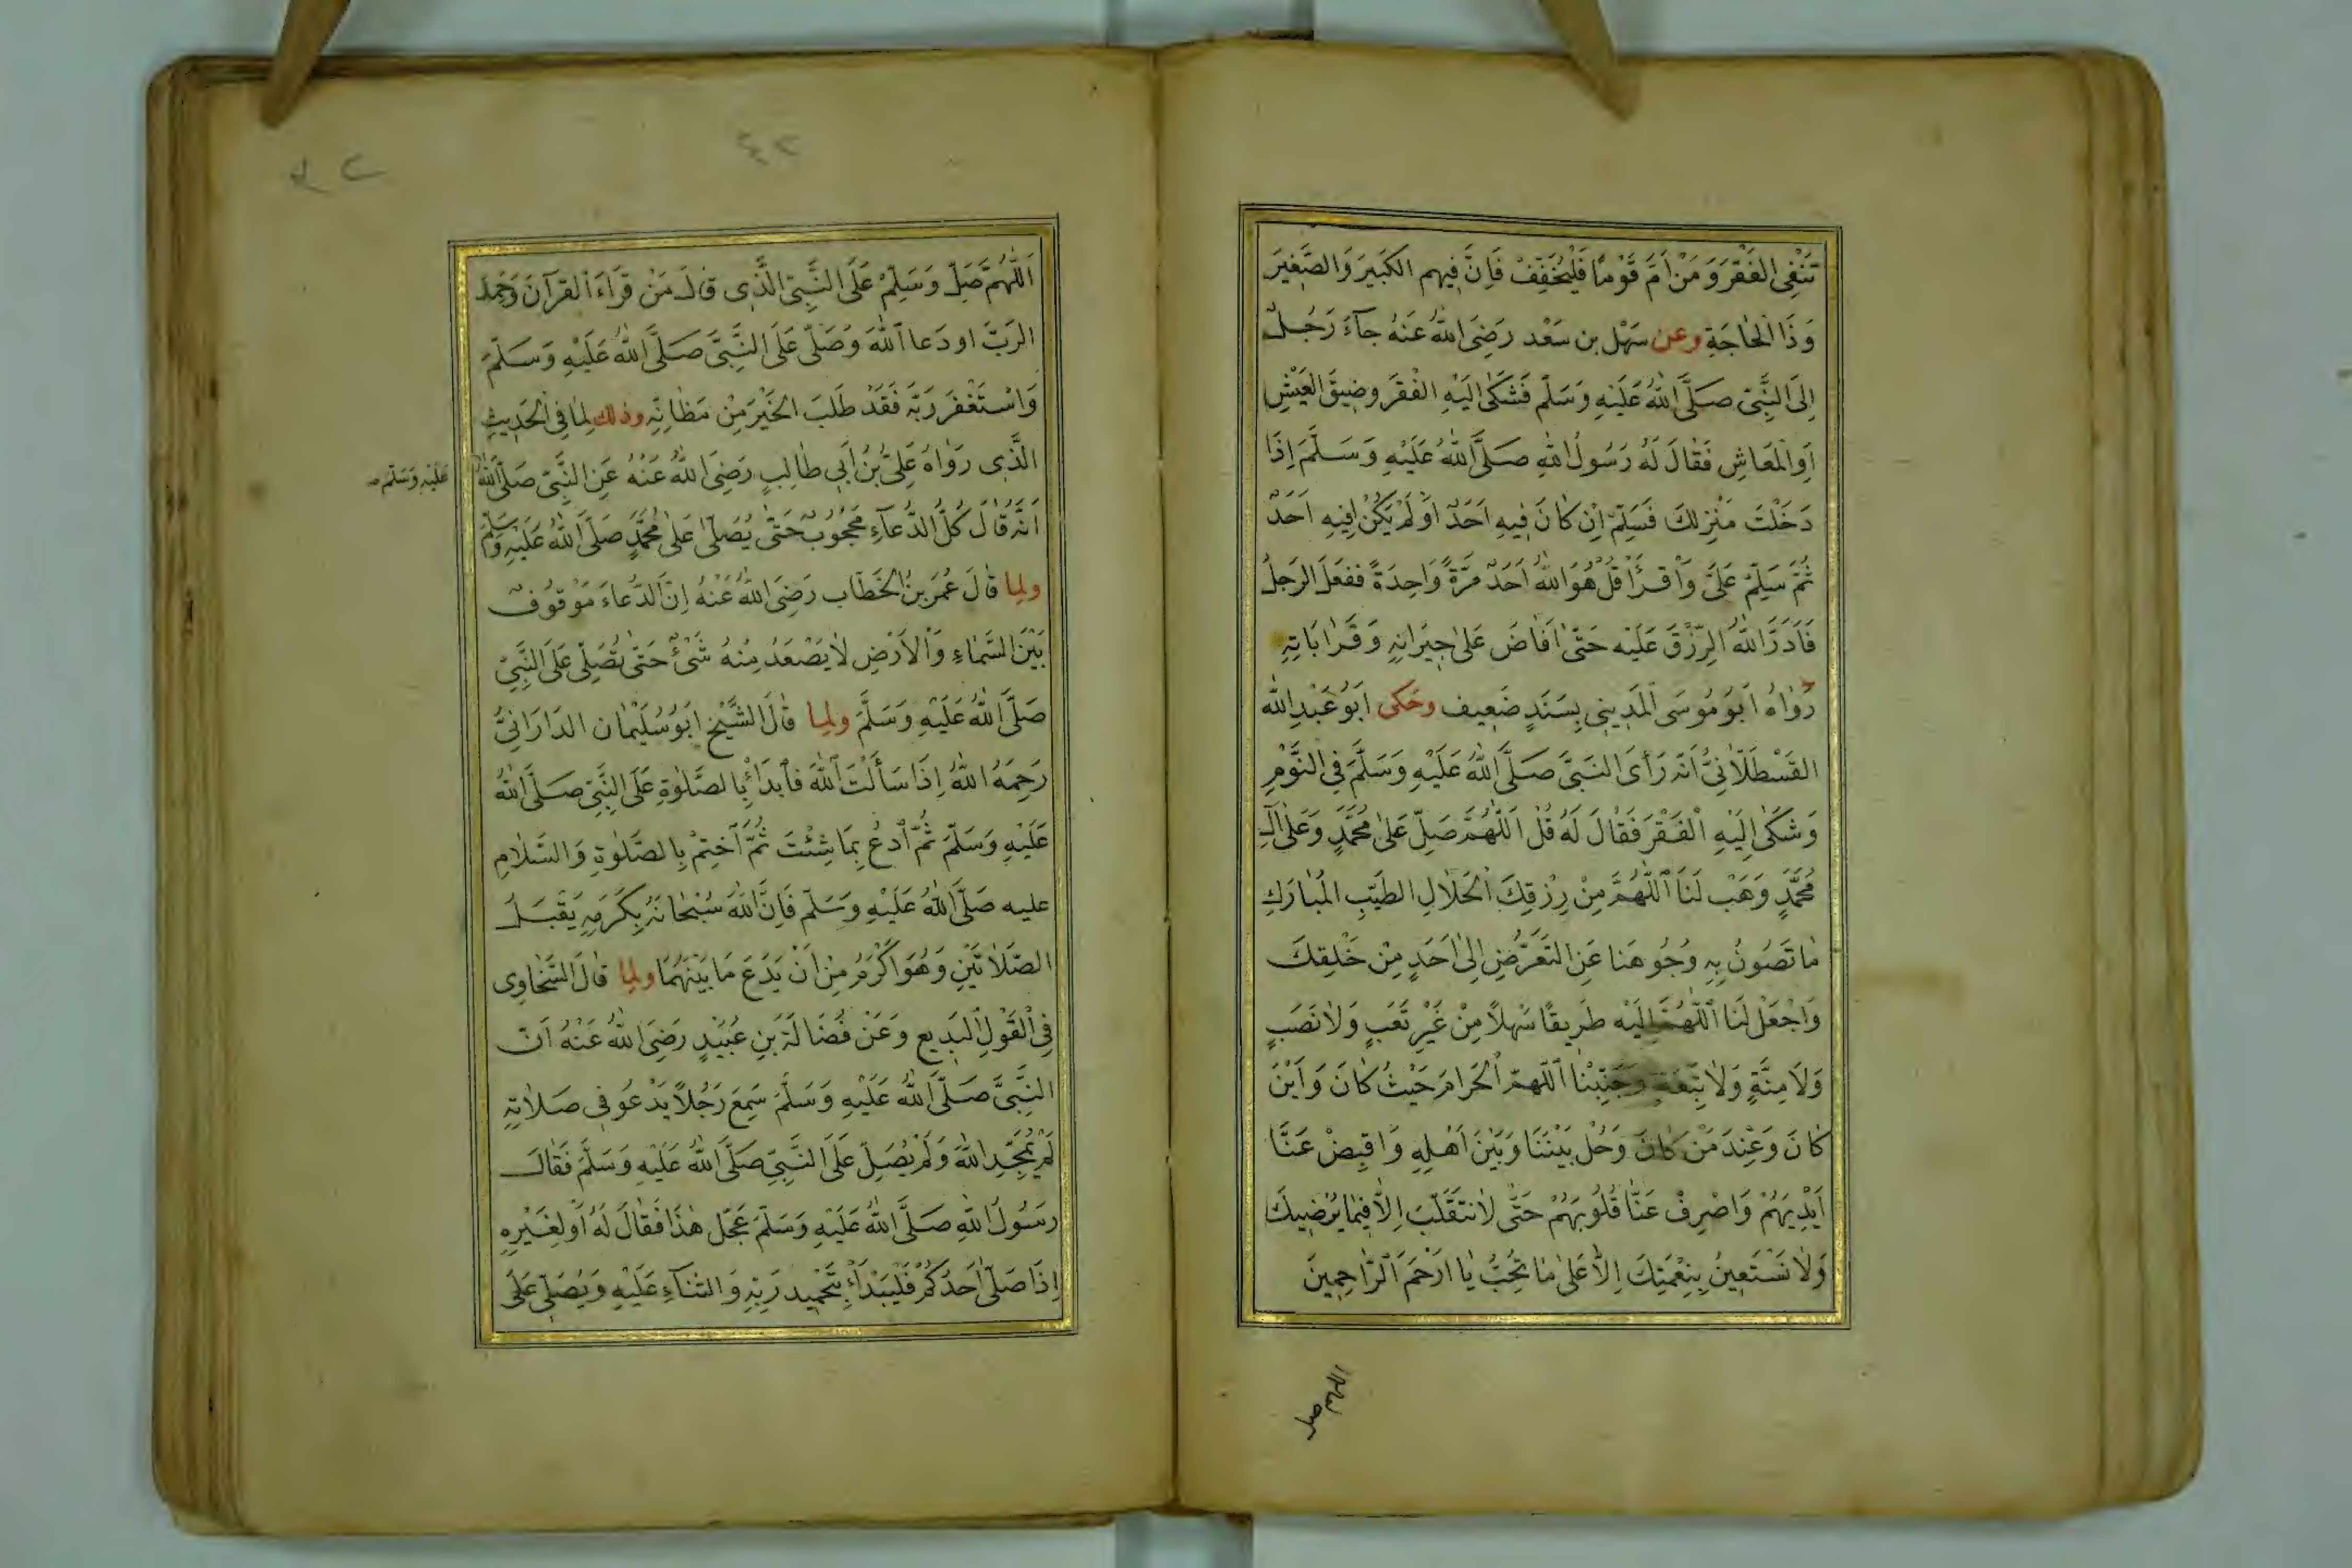 تَنْفِى الفَقْرَ وَمَنْ اَمَّ قَوْمًا فَلْيُخَفِّفْ فَاِنَّ فِيهِم الكَبِيرَ وَالصَّغِيرَ
وَذَا الْحَاجَةِ وعن سَهْل بن سَعْد رَضِىَ اللّٰهُ عَنهُ جَآءَ رَجُلٌ
اِلَى النَّبِىّ صَلَّى اللّٰهُ عَلَيْهِ وَسَلَّم فَشَكٰى اِلَيْهِ الفَقْرَ وضِيقَ العَيْشِ
اَوِالْمَعَاشِ فَقَالَ لَهُ رَسُولُ اللّٰهِ صَلَّى اللّٰهُ عَلَيْهِ وَسَلَّمَ اِذَا
دَخَلْتَ مَنْزِلكَ فَسَلِّمْ اِن كَانَ فِيهِ اَحَدٌ اَوْ لَمْ يَكُنْ فِيهِ اَحَدٌ
ثُمَّ سَلِّمْ عَلَىَّ وَاْقْرَأْ قُلْ هُوَ اللّٰهُ اَحَدٌ مَرَّةً وَاحِدَةً ففَعَلَ الرَجلُ
فَاَدَرَّ اللّٰهُ الرِّزْقَ عَلَيْه حَتّٰى اَفَاضَ عَلٰى جِيرَانِهِ وَقَرَابَاتِهِ
رَوَاهُ اَبُو مُوسَى الْمَدِينِى بِسَنَدٍ ضَعِيف وحَكى اَبُو عَبْدِ اللّٰه
القَسْطَلَّانِىُّ اَنَّهُ رَأَى النَبِىَّ صَلَّى اللّٰهُ عَلَيْهِ وَسَلَّمَ فِى النَّوْمِ
وَشَكٰى اِلَيْهِ الْفَقْرَ فَقَالَ لَهُ قُلْ اَللّٰهُمَّ صَلِّ عَلٰى مُحَمَّدٍ وَعَلٰى آلِ
مُحَمَّدٍ وَهَبْ لَنَا اَللّٰهُمَّ مِنْ رِزْقِكَ الْحَلَالِ الطَيِّبِ المُبَارَكِ
مَا تَصُونُ بِهِ وُجُوهَنا عَنِ التَعَرُّضِ اِلٰى اَحَدٍ مِنْ خَلْقِكَ
وَاجْعَلْ لَنَا اَللّٰهُمَّ اِلَيْه طَرِيقًا سَهلاً مِنْ غَيْرِ تَعَبٍ وَلَا نَصَبٍ
وَلَا مِنَّةٍ وَلَا تَبِعَةٍ وَجَنِّبْنَا اَللّٰهمّ الْحَرَامَ حَيْثُ كَانَ وَاَيْنَ
كَانَ وَعِنْدَ مَنْ كَانَ وَحُلْ بَيْنَنَا وَبَيْنَ اَهْلِهِ وَاقْبِضْ عَنَّا
اَيْدِيَهُمْ وَاصْرِفْ عَنَّا قُلُوبَهُمْ حَتّٰى لَا نتَقَلَّبَ اِلَّا فِيْمَا يُرْضِيكَ
وَلَا نَسْتَعِينُ بِنِعْمَتِكَ اِلَّا عَلٰى مَا تُحِبُّ يَا اَرْحَمَ اَلرَّاحِمِينَ
اللهم صل
٤٢
اَللّٰهُمَّ صَلِّ وَسَلِّمْ عَلَى النَّبِىّ الَّذِى قَالَ مَنْ قَرَاءَ الْقرآنَ وَحَمِدَ
الرَبَّ اودَعا اَللّٰهَ وَصَلّٰى عَلَى النَّبِىَّ صَلَّى اللّٰهُ عَلَيْهِ وَسَلَّمَ
وَاسْتَغْفَرَ رَبَّهُ فَقَدْ طَلَبَ الخَيْرَ مِنْ مَظَانِّهِ وذلك لِمَا فِى الْحَدِيثِ
الَّذِى رَوَاهُ عَلِىّ بْنُ أَبِى طَالِبٍ رَضِىَ اللّٰهُ عَنْهُ عَنِ النَّبِىّ صَلَّى اللّٰهُ
عَلَيْهِ وَسَلَّم
اَنَّهُ قَالَ كُلُّ الدُّعَآءِ مَحْجُوبٌ حَتّٰى يُصَلّٰى عَلٰى مُحَمَّدٍ صَلَّى اللّٰهُ عَلَيْهِ وَسَلَّمَ
ولِما قَالَ عُمَر بنُ الخَطَّاب رَضِىَ اللّٰهُ عَنْهُ اِنَّ الدُّعَاءَ مَوْقُوفٌ
بَيْنَ السَّمَاءِ وَالْاَرْضِ لَا يَصْعَدُ مِنهُ شَىْءٌ حَتّٰى تُصَلِّىَ عَلَى النَّبِىّ
صَلَّى اللّٰهُ عَلَيْهِ وَسَلَّمَ ولِما قَالَ الشَّيْخ اَبُو سُلَيْمَان الدَارَانِىُّ
رَحِمَهُ اللّٰهُ اِذَا سَأَلْتَ اَللّٰهَ فَاَبدَأْ بِالصَّلٰوةِ عَلَى النَّبِىّ صَلَّى اللّٰهُ
عَلَيْهِ وَسَلَّمَ ثُمَّ اُدعُ بِمَا شِئْتَ ثُمَّ اَخْتِمْ بِالصَّلٰوةِ وَالسَّلَامِ
عليه صَلَّى اللّٰهُ عَلَيْهِ وَسَلَّم فَاِنَّ اللّٰهَ سُبْحَانَهُ بِكَرَمِهِ يَقْبَلُ
الصَّلَاتَيْنِ وَهُوَ اَكْرَمُ مِنْ اَنْ يَدَعَ مَا بَيْنَهُمَا ولِما قَالَ السَّخَاوِى
فِى الْقَوْلِ البَدِيعِ وَعَنْ فُضَالَةَ بنِ عُبَيْدٍ رَضِىَ اللّٰهُ عَنْهُ اَنَّ
النَّبِىَّ صَلَّى اللّٰهُ عَلَيْهِ وَسَلَّمَ سَمِعَ رَجُلاً يَدْعُو فِى صَلَاتِهِ
لَمْ يُمَجِّدِ اللّٰهَ وَلَمْ يُصَلِّ عَلَى النَّبِىّ صَلَّى اللّٰهُ عَلَيْهِ وَسَلَّمَ فَقَالَ
رَسُولُ اللّٰهِ صَلَّى اللّٰهُ عَلَيْهِ وَسَلَّمَ عَجَّلَ هٰذَا فَقَالَ لَهُ اَوْ لِغَيْرِهِ
اِذَا صَلّٰى اَحَدُكُمْ فَلْيَبْدَأْ بِتَحْمِيد رَبِّهِ وَالثنَاءِ عَلَيْهِ وَيُصَلِّى عَلَى